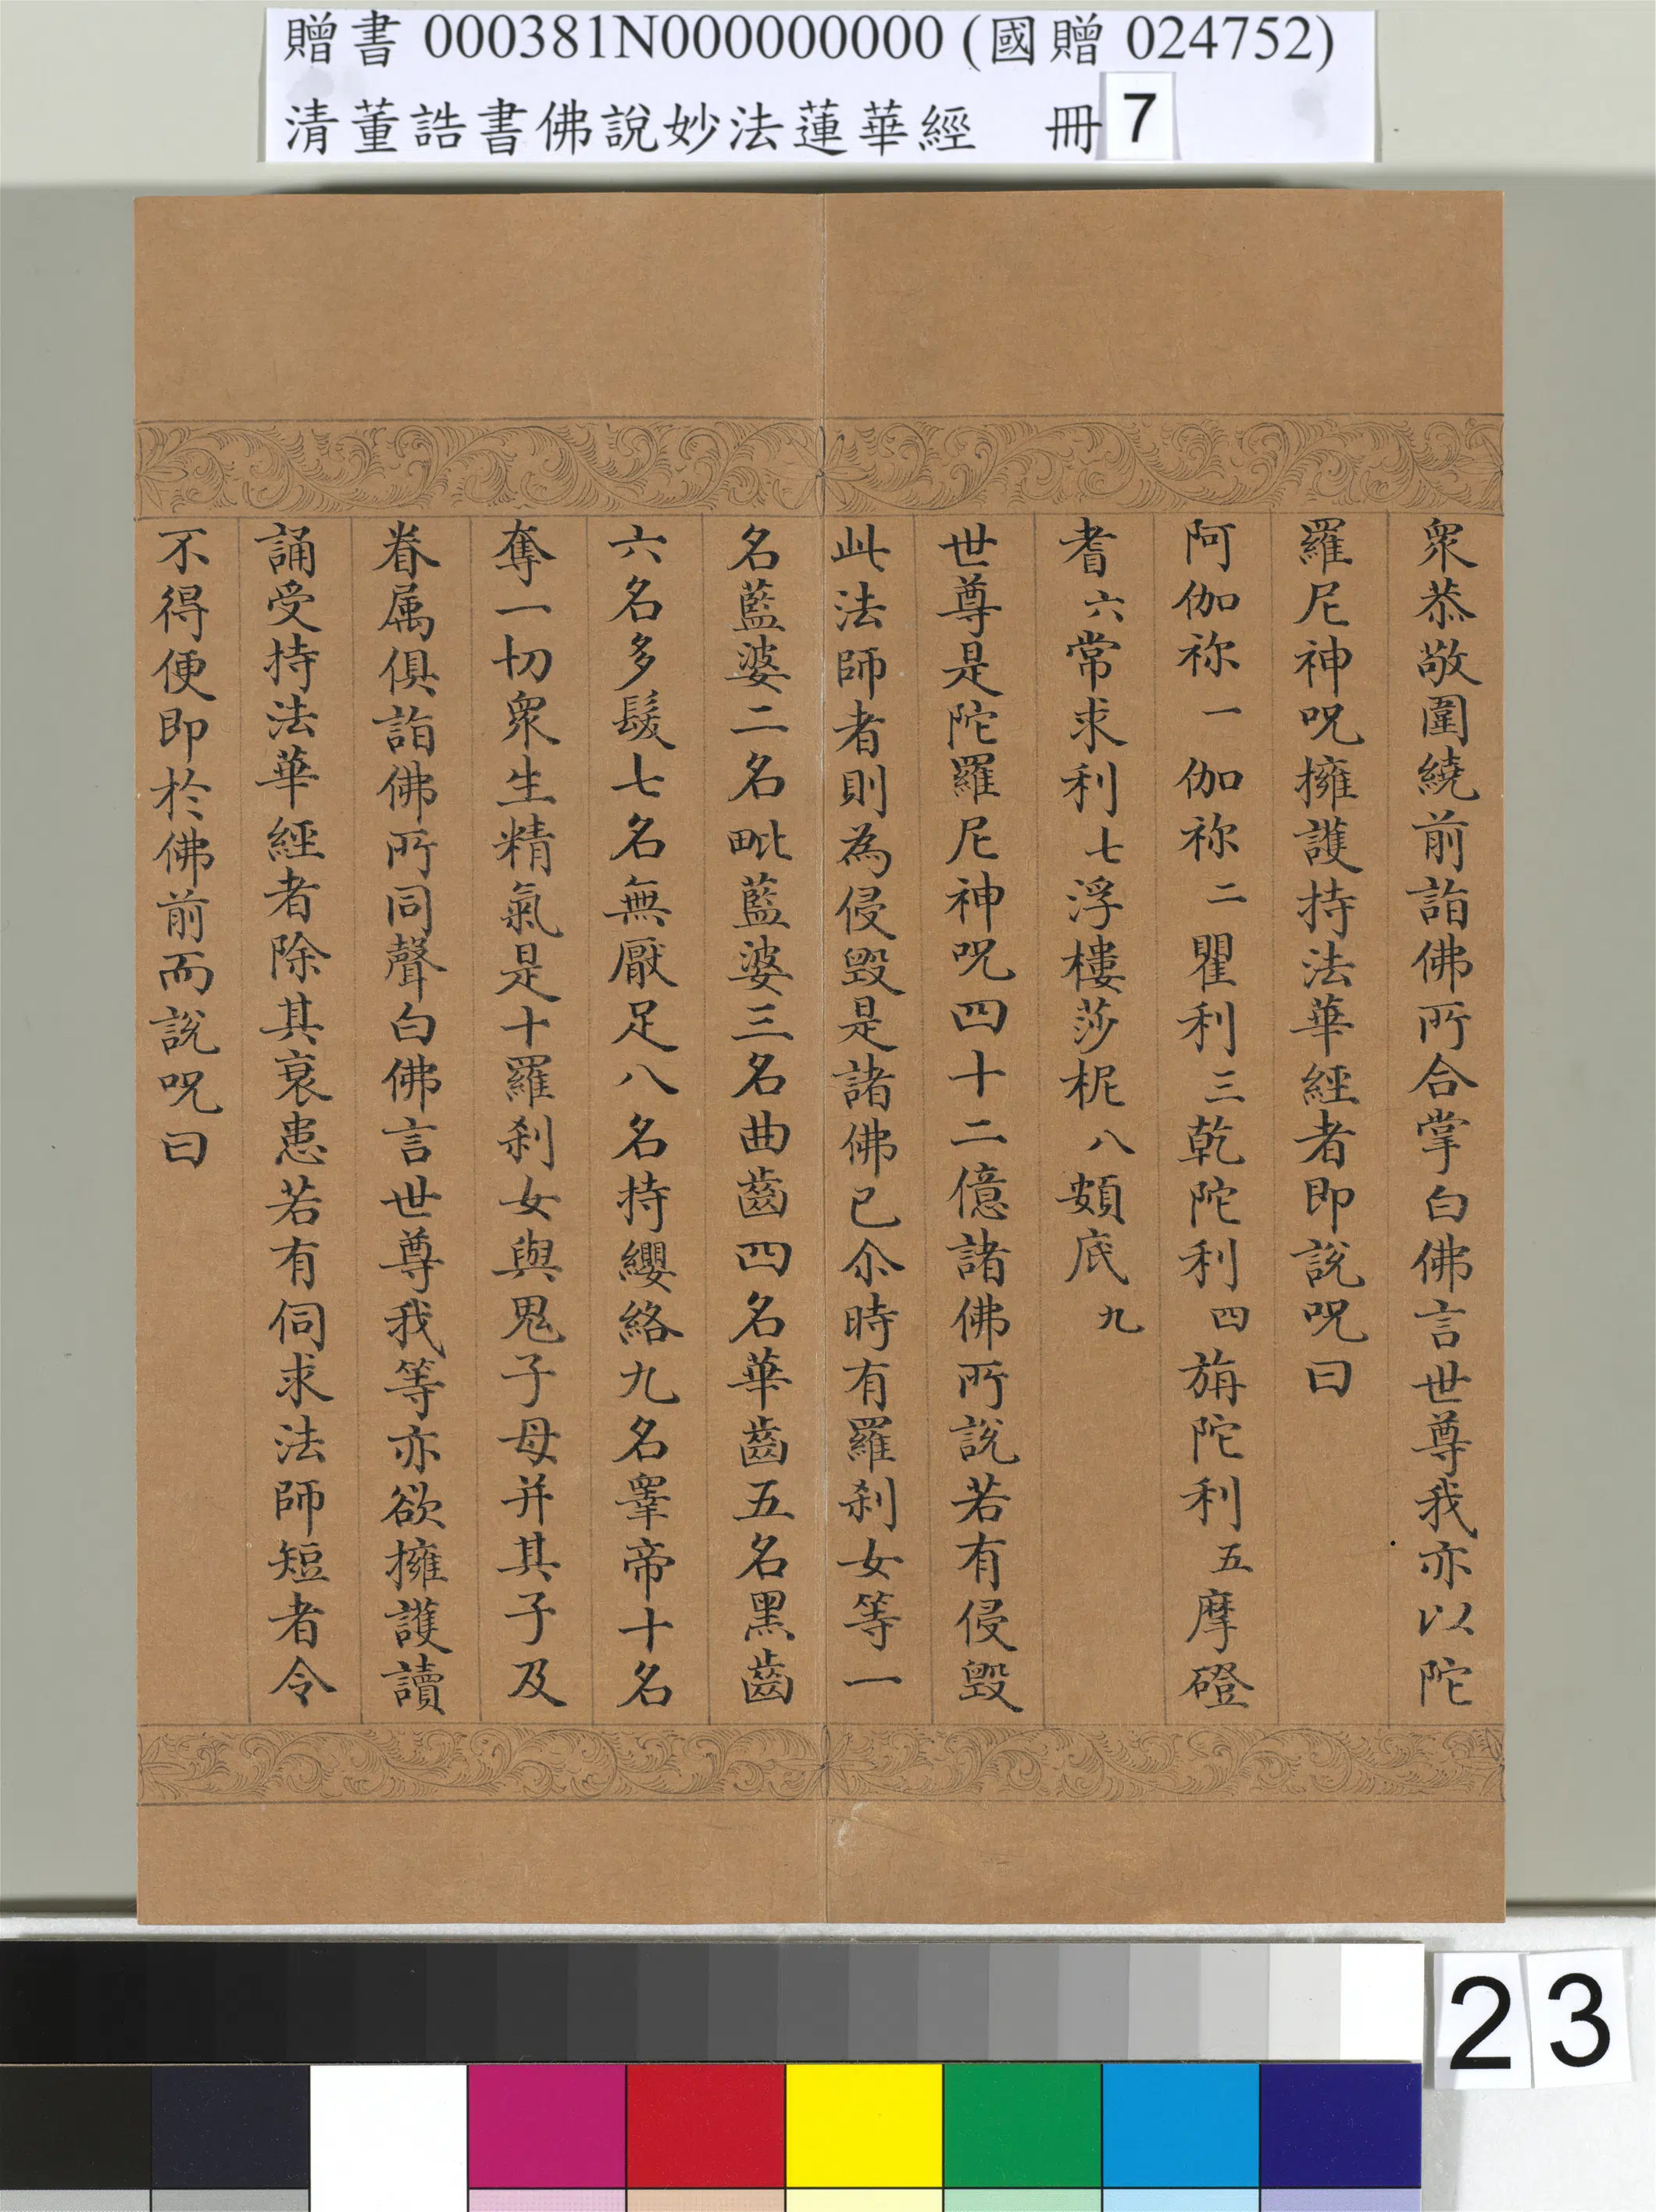 贈書 000381N000000000 (國贈 024752)
清董誥書佛說妙法蓮華經 冊 7
衆恭敬圍繞前詣佛所合掌白佛言世尊我亦以陀
羅尼神呪擁護持法華經者即說呪曰
阿伽祢一伽祢二瞿利三乾陀利四旃陀利五摩磴
耆六常求利七浮樓莎柅八頞底九
世尊是陀羅尼神呪四十二億諸佛所說若有侵毀
此法師者則為侵毀是諸佛已尒時有羅刹女等一
名藍婆二名毗藍婆三名曲齒四名華齒五名黑齒
六名多髮七名無厭足八名持纓絡九名睾帝十名
奪一切衆生精氣是十羅刹女與鬼子母并其子及
眷属俱詣佛所同聲白佛言世尊我等亦欲擁護讀
誦受持法華經者除其衰患若有伺求法師短者令
不得便即於佛前而說呪曰
23